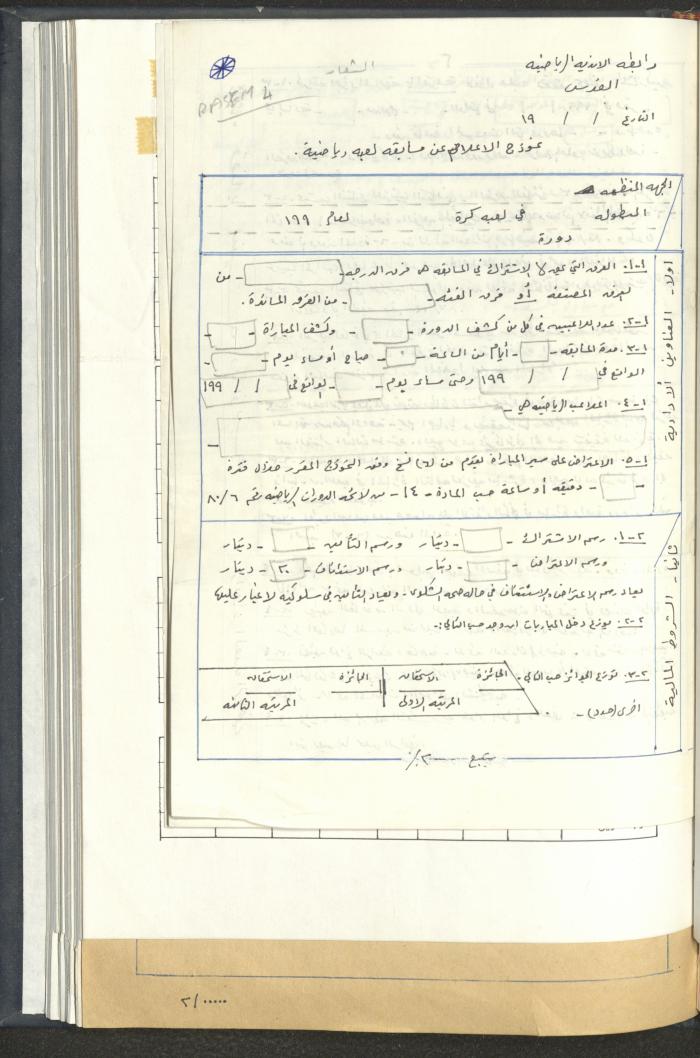 الشعار
رابطة الاندية الرياضية
القدس
PASEM 4
التاريخ / / ١٩
نموذج الاعلام عن مسابقة لعبة رياضية .
الجهة المنظمة
البطولة في لعبة كرة لعام ١٩٩
دورة
اولا - العناوين الادارية
١-١. الفرق التي يحق لها الاشتراك في المسابقة هي فرق الدرجة - - من
الفرق المصنفة أو فرق الفئة - - من الفرق المساندة .
١-٢. عدد اللاعبين في كل من كشف الدورة - - وكشف المباراة - -
١-٣. مدة المسابقة - - أيام من الساعة - - صباح أو مساء يوم - -
الواقع في / / ١٩٩ وحتى مساء يوم - - الواقع في / / ١٩٩
١-٤. الملاعب الرياضية هي -
١-٥. الاعتراض على سير المباراة يقدم من (٦) نسخ وفق النموذج المقرر خلال فترة
- - دقيقة أو ساعة حسب المادة - ١٤ - من لائحة الدورات الرياضية رقم ٨٠/٦
ثانيا - الشروط المالية
٢-١. رسم الاشتراك - - دينار ورسم التأمين - - دينار
ورسم الاعتراض - - دينار ورسم الاستئناف - ٢٠ - دينار
يعاد رسم الاعتراض والاستئناف في حالة صحة الشكوى - ويعاد التأمين في سلوكية لا غبار عليها
٢-٢. توزيع دخل المباريات ان وجد حسب التالي :-
٢-٣. توزع الجوائز حسب التالي . الجائزة الاستحقاق الجائزة الاستحقاق
اخرى (حدد) - . المرتبة الاولى المرتبة الثانية
يتبع ٠٠٠٠٠/٢
٢/٠٠٠٠٠